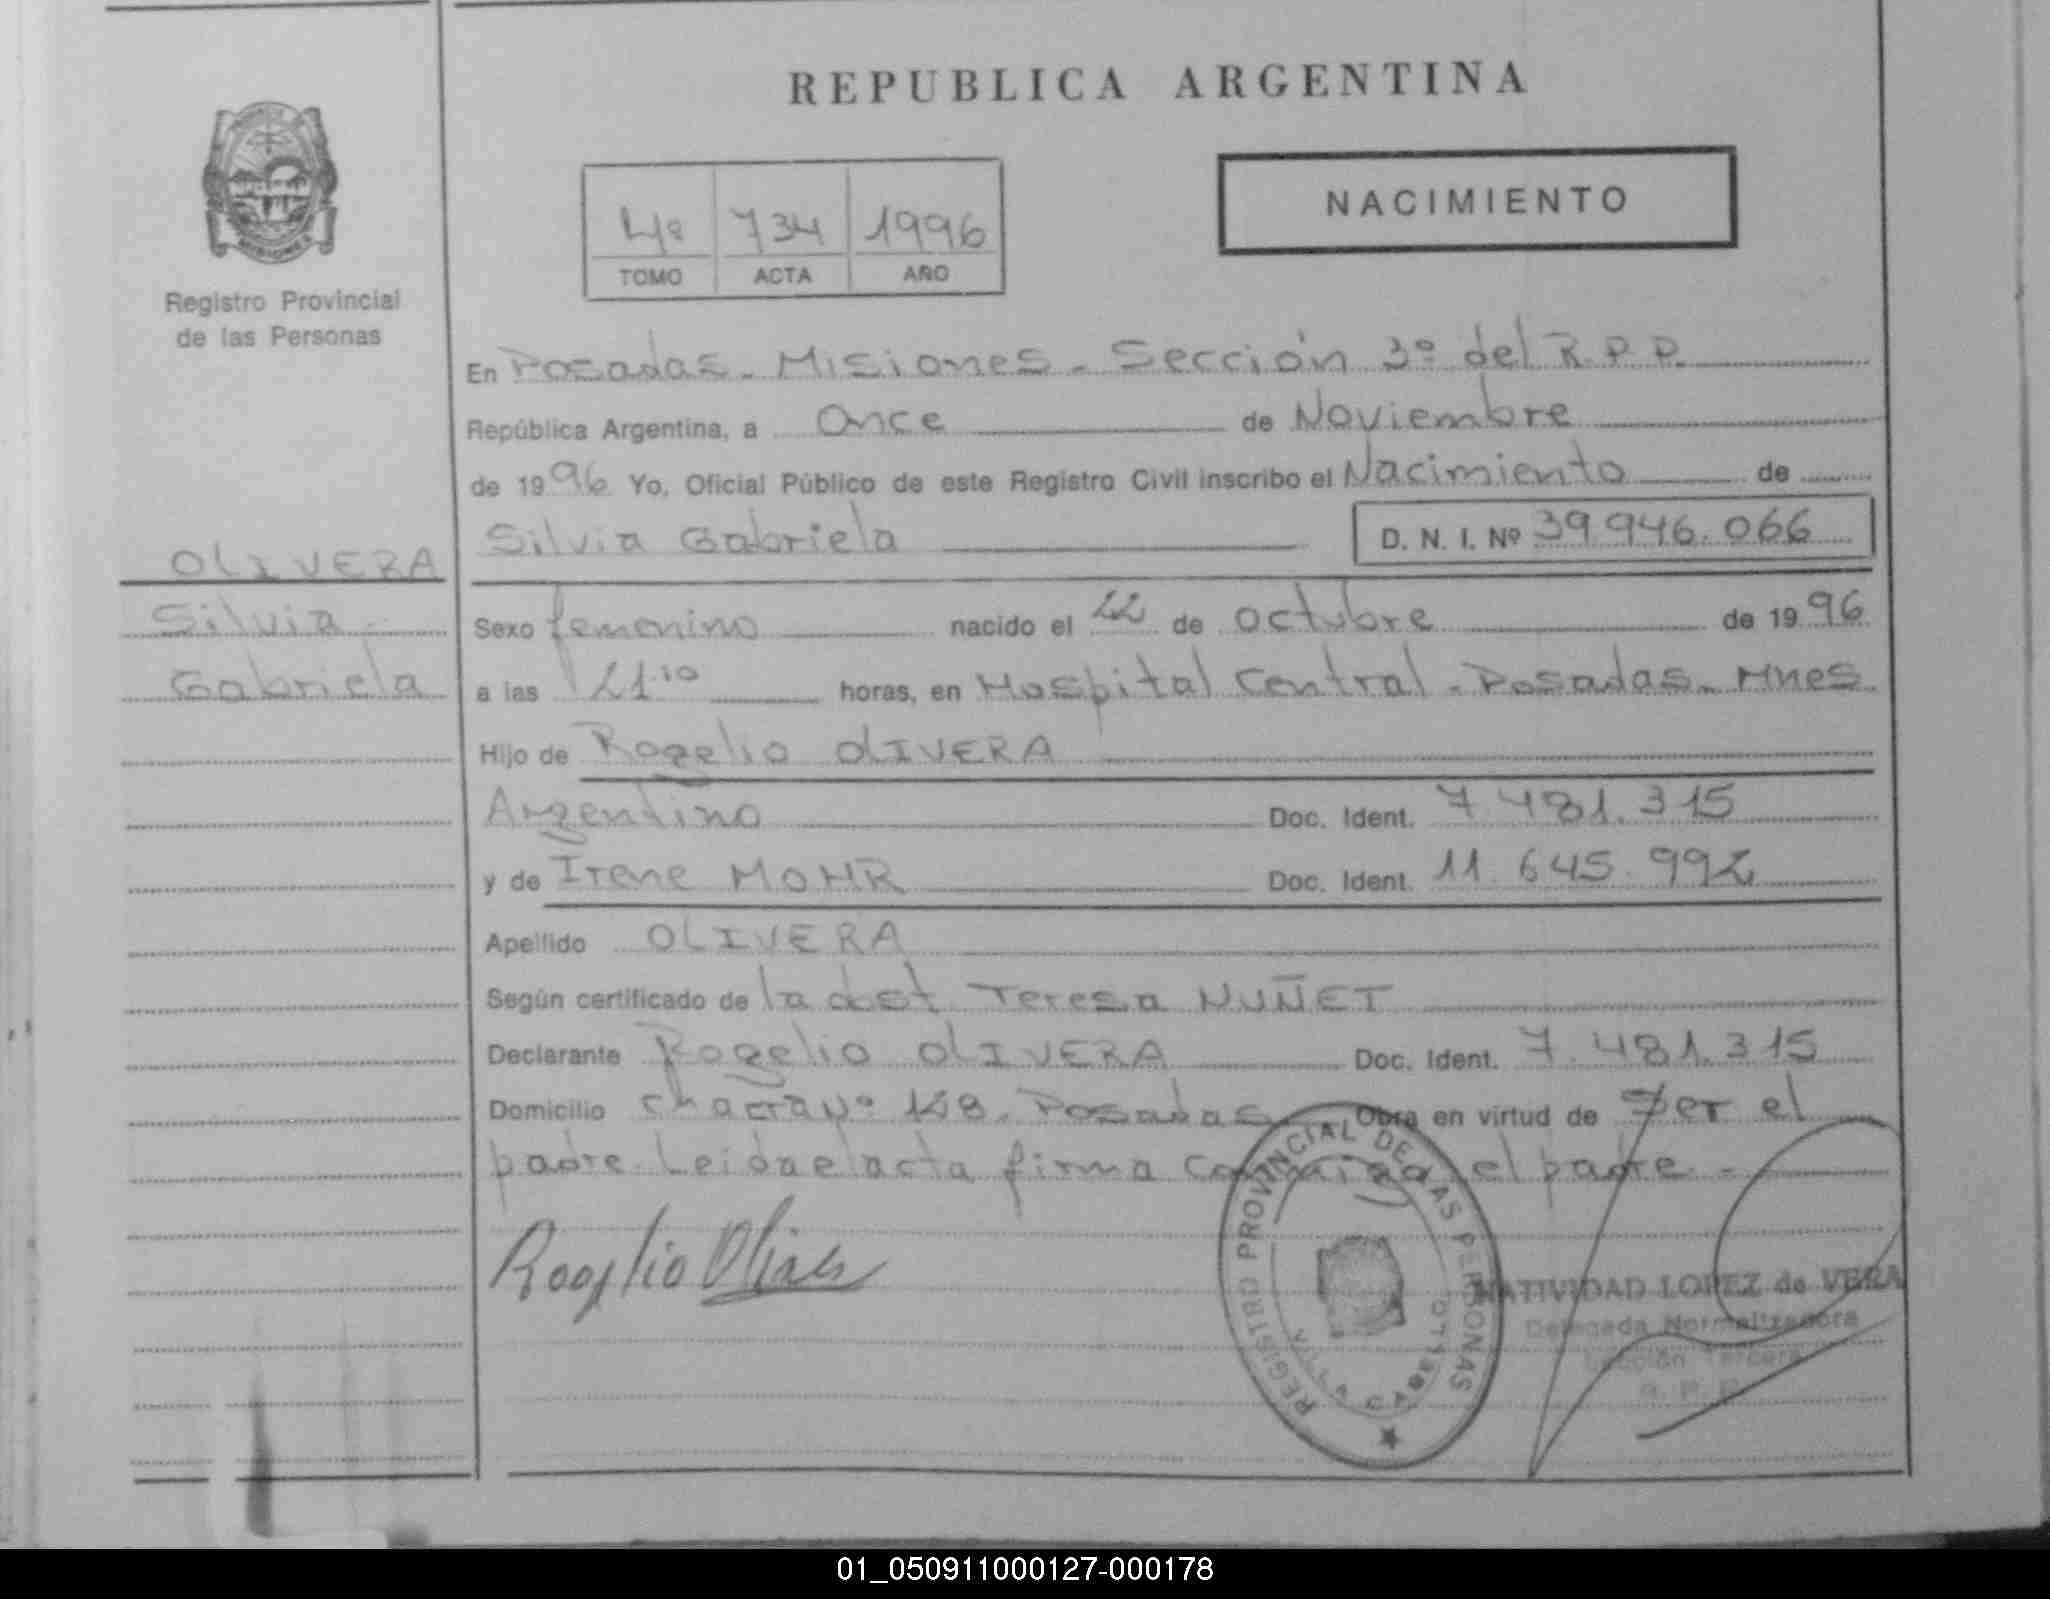 REPUBLICA ARGENTINA
NACIMIENTO
4º 734 1996
TOMO ACTA AÑO
Registro Provincial
de las Personas
En Posadas - Misiones - Sección 3º del R.P.P.
República Argentina, a Once de Noviembre
de 1996 Yo, Oficial Público de este Registro Civil inscribo el Nacimiento de
Silvia Gabriela D. N. I. Nº 39.946.066
OLIVERA
Silvia
Gabriela
Sexo femenino nacido el 22 de octubre de 1996
a las 21:10 horas, en Hospital Central - Posadas - Mnes.
Hijo de Rogelio OLIVERA
Argentino Doc. Ident. 7.481.315
y de Irene MOHR Doc. Ident. 11.645.992
Apellido OLIVERA
Según certificado de la obst. Teresa NUÑET
Declarante Rogelio OLIVERA Doc. Ident. 7.481.315
Domicilio Chacra Nº 148 - Posadas Obra en virtud de Ser el
padre. Leida el acta firma conmigo el padre. -
Rogelio Olivera
REGISTRO PROVINCIAL DE LAS PERSONAS
VILLA CABELLO
NATIVIDAD LOPEZ de VERA
Delegada Normalizadora
Sección Tercera
R. P. P.
01_050911000127-000178